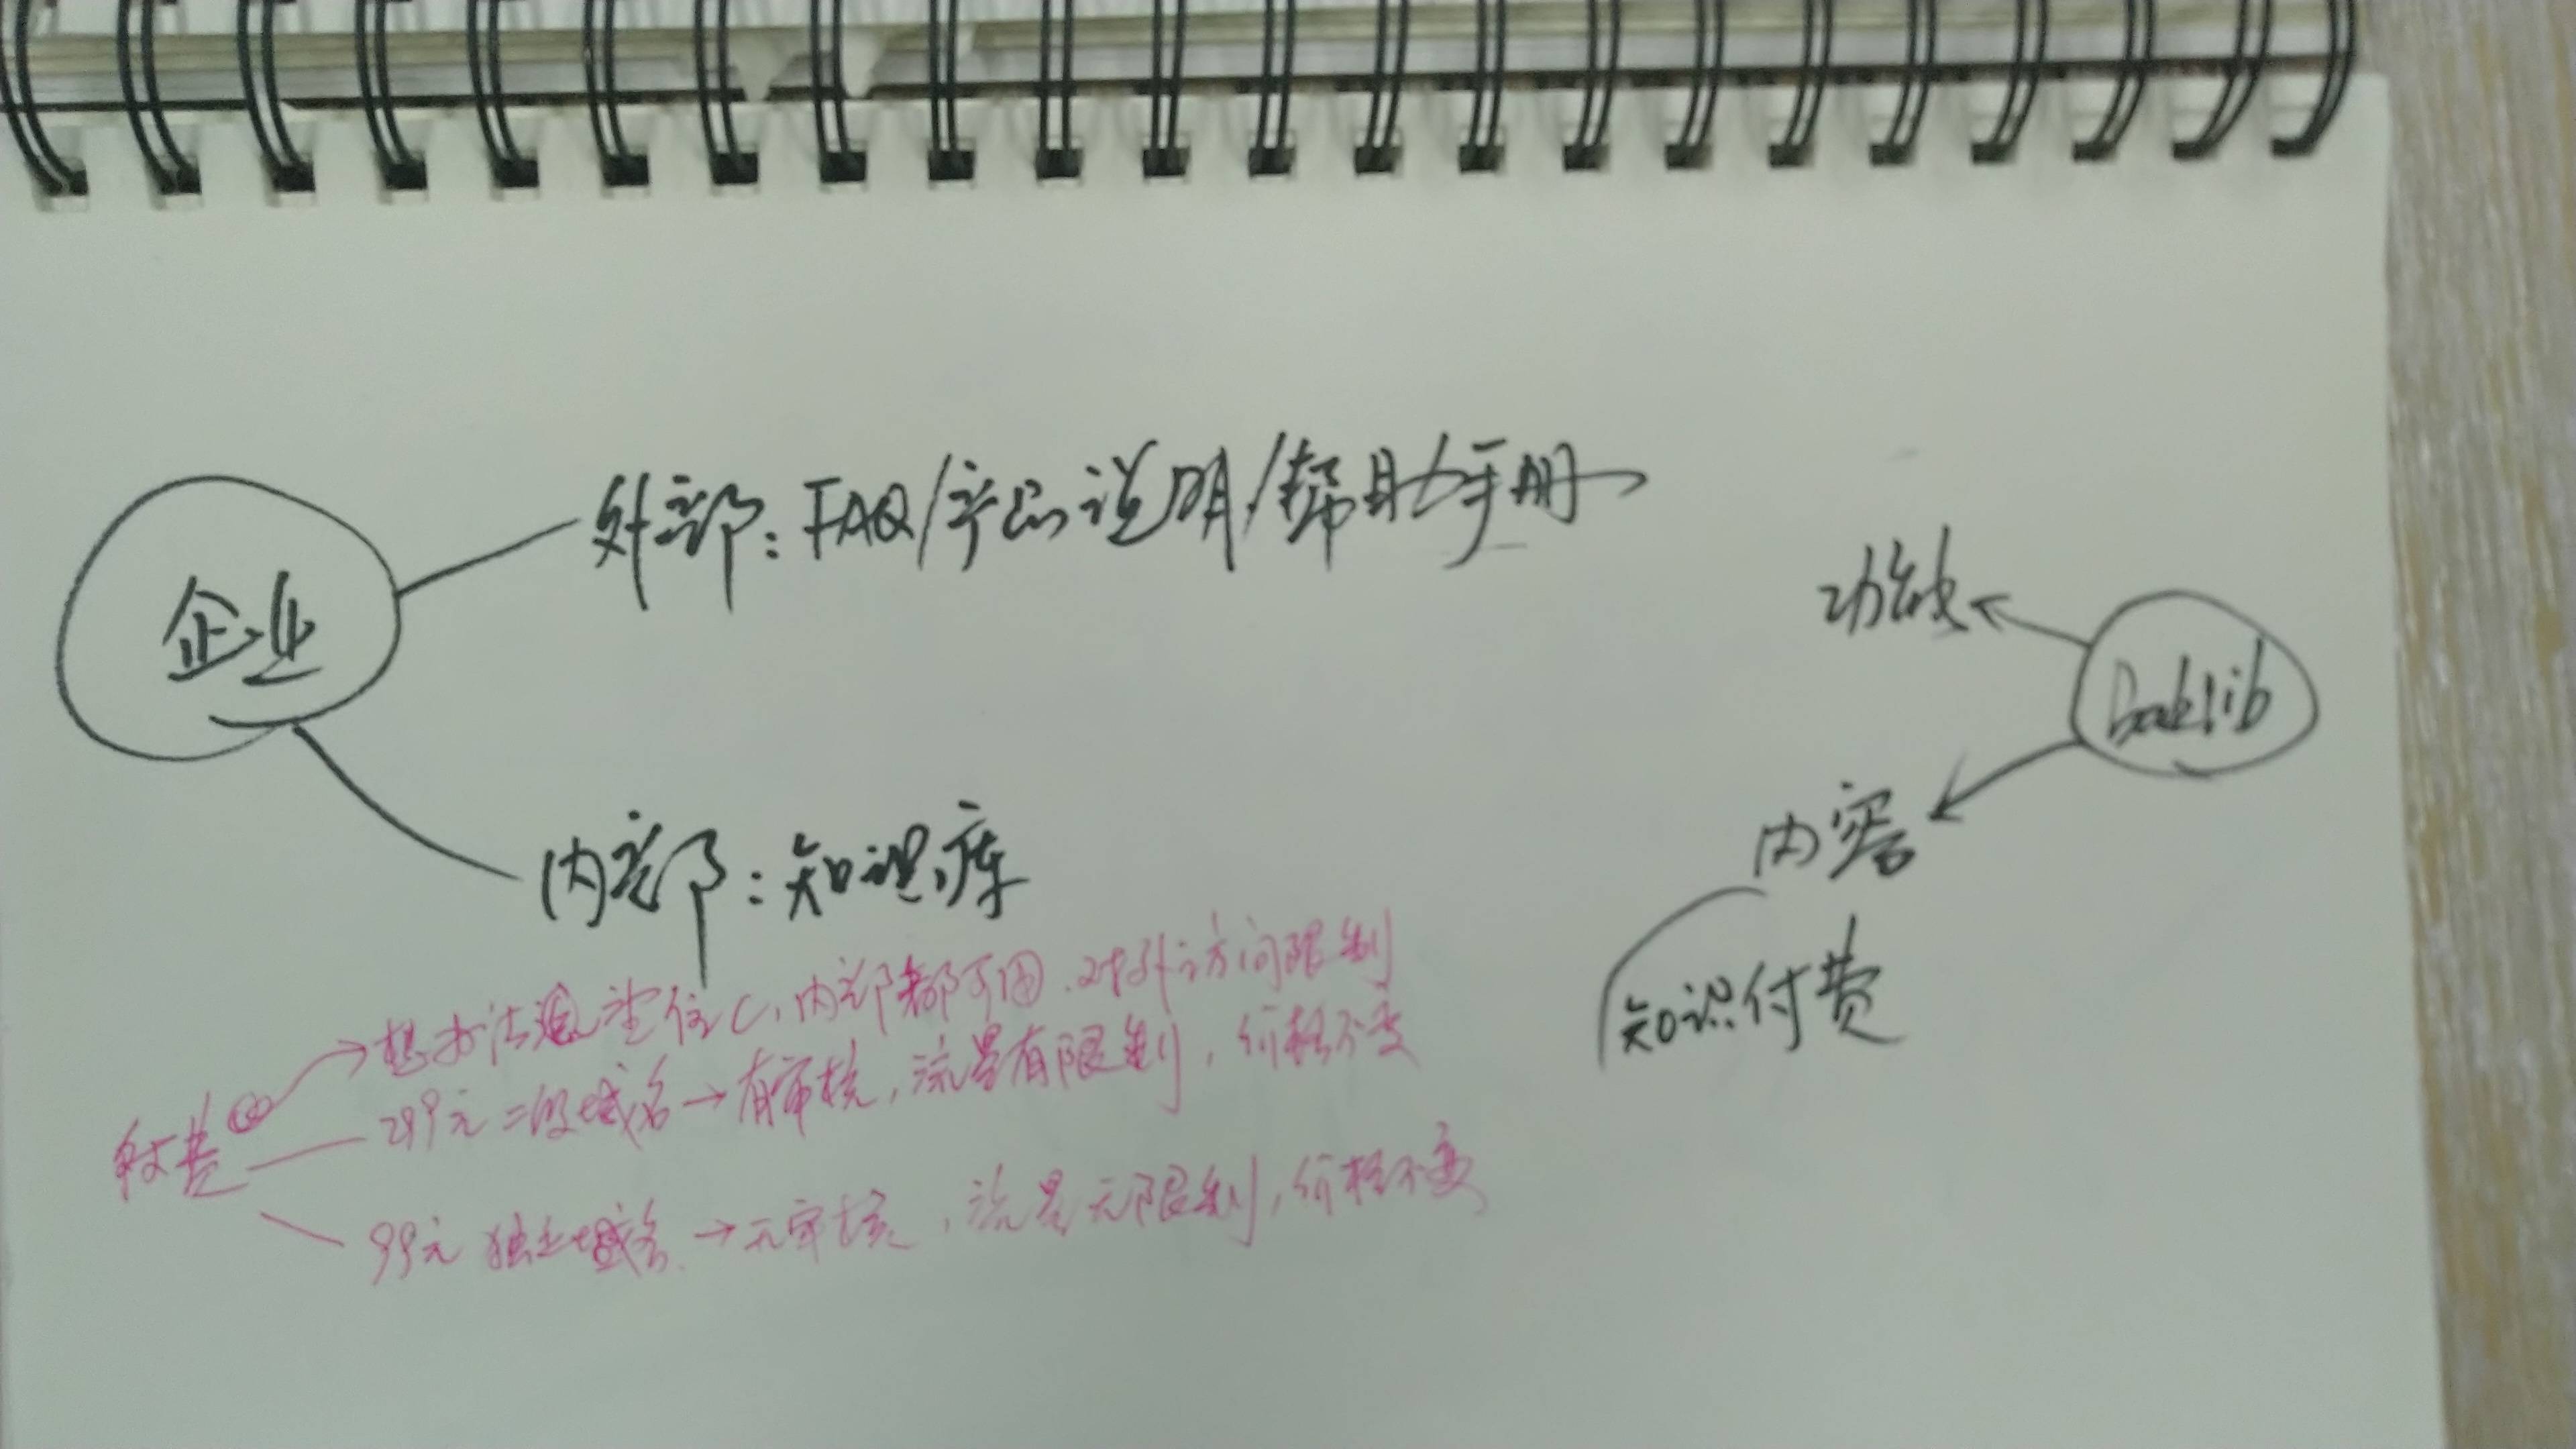 外部：FAQ/产品说明/帮助手册
企业
内部：知识库
功能
Baklib
内容
知识付费
想办法 内部都可用．对外访问限制
299元 二级域名→有审核，流量有限制，价格不变
付费
99元 独立域名→无审核，流量无限制，价格不变